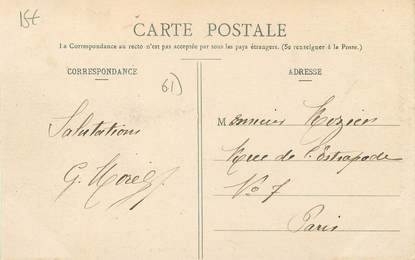 15t
CARTE POSTALE
La Correspondance au recto n'est pas acceptée par tous les pays étrangers. (Se renseigner à la Poste.)
CORRESPONDANCE
ADRESSE
61)
Salutations
G. Morel
Monsieur
Rue de l'Estrapade
No 7
Paris